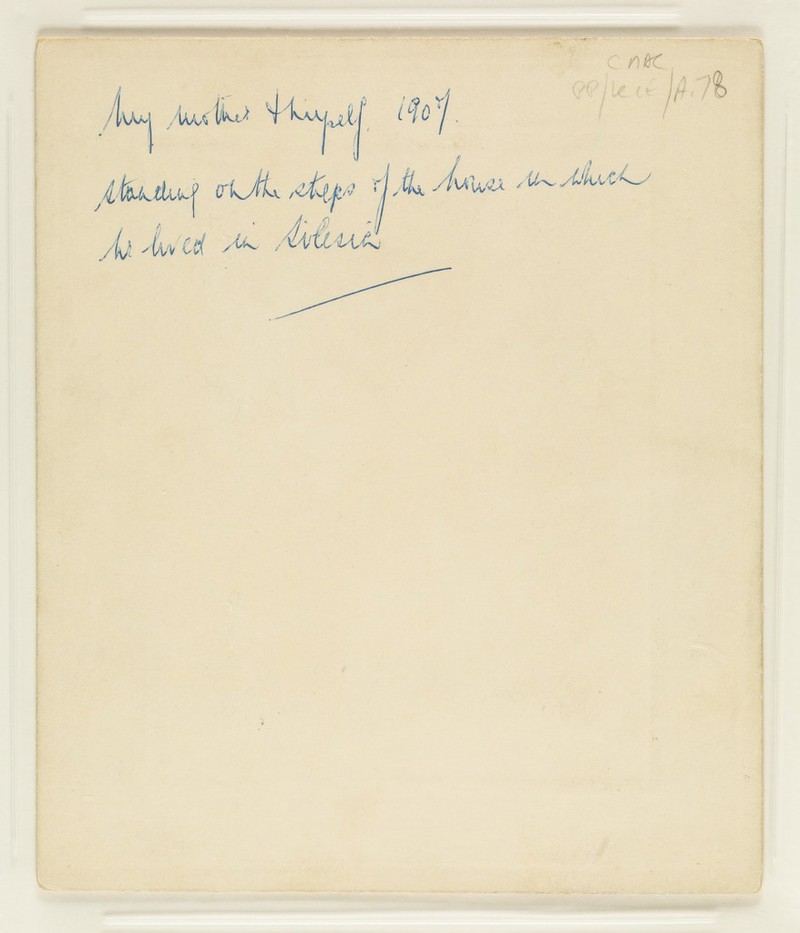 CMAC
PP/KLE/A.78
My mother & myself. 1907.
standing on the steps of the house in which
we lived in Silesia